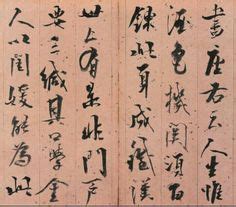 書座右云人生惟
酒色機關須百
鍊此身成鐵漢
世上有是非門戶
要三緘其口學金
人以閨媛能為此